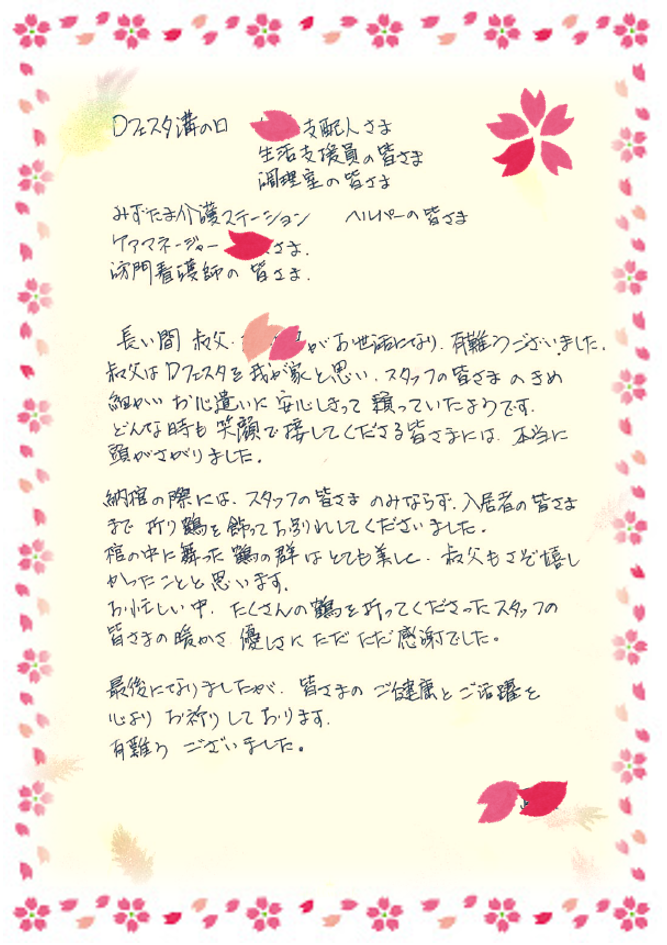 Dフェスタ溝の口 支配人さま
生活支援員の皆さま
調理室の皆さま
みずたま介護ステーション ヘルパーの皆さま
ケアマネージャー さま.
訪問看護師の 皆さま.
長い間 叔父・ がお世話になり、有難うございました。
叔父はDフェスタを我が家と思い、スタッフの皆さまのきめ
細かい お心遣いに 安心しきって 頼っていたようです.
どんな時も 笑顔で接してくださる皆さまには、本当に
頭がさがりました。
納棺の際には、スタッフの皆さま のみならず、入居者の皆さま
まで 折り鶴を飾ってお別れしてくださいました。
棺の中に舞った 鶴の群はとても美しく、叔父もさぞ嬉し
かったことと思います.
お忙しい中、たくさんの鶴を折ってくださったスタッフの
皆さまの暖かさ 優しさに ただただ感謝でした。
最後になりましたが、皆さまの ご健康とご活躍を
心より お祈りしております.
有難う ございました。